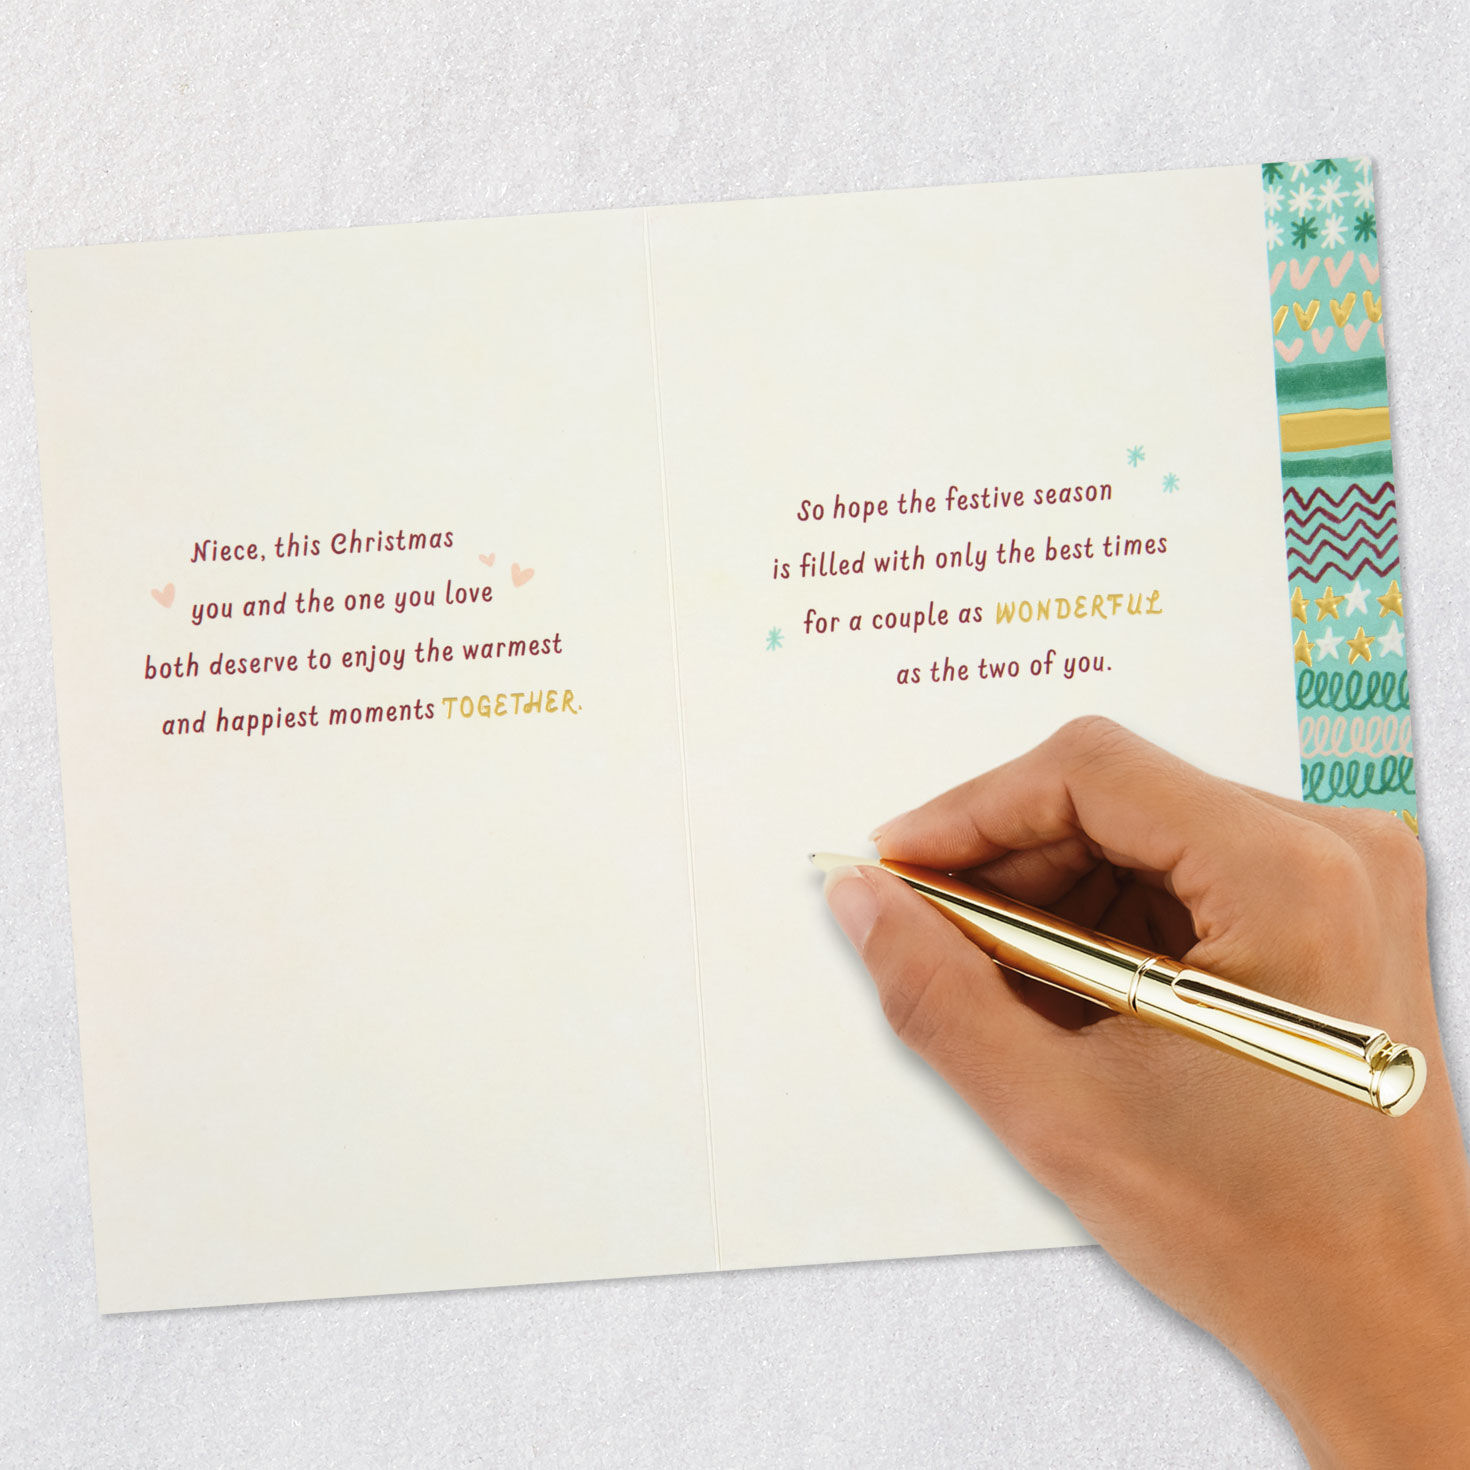 Niece, this Christmas
you and the one you love
both deserve to enjoy the warmest
and happiest moments TOGETHER.
So hope the festive season
is filled with only the best times
for a couple as WONDERFUL
as the two of you.